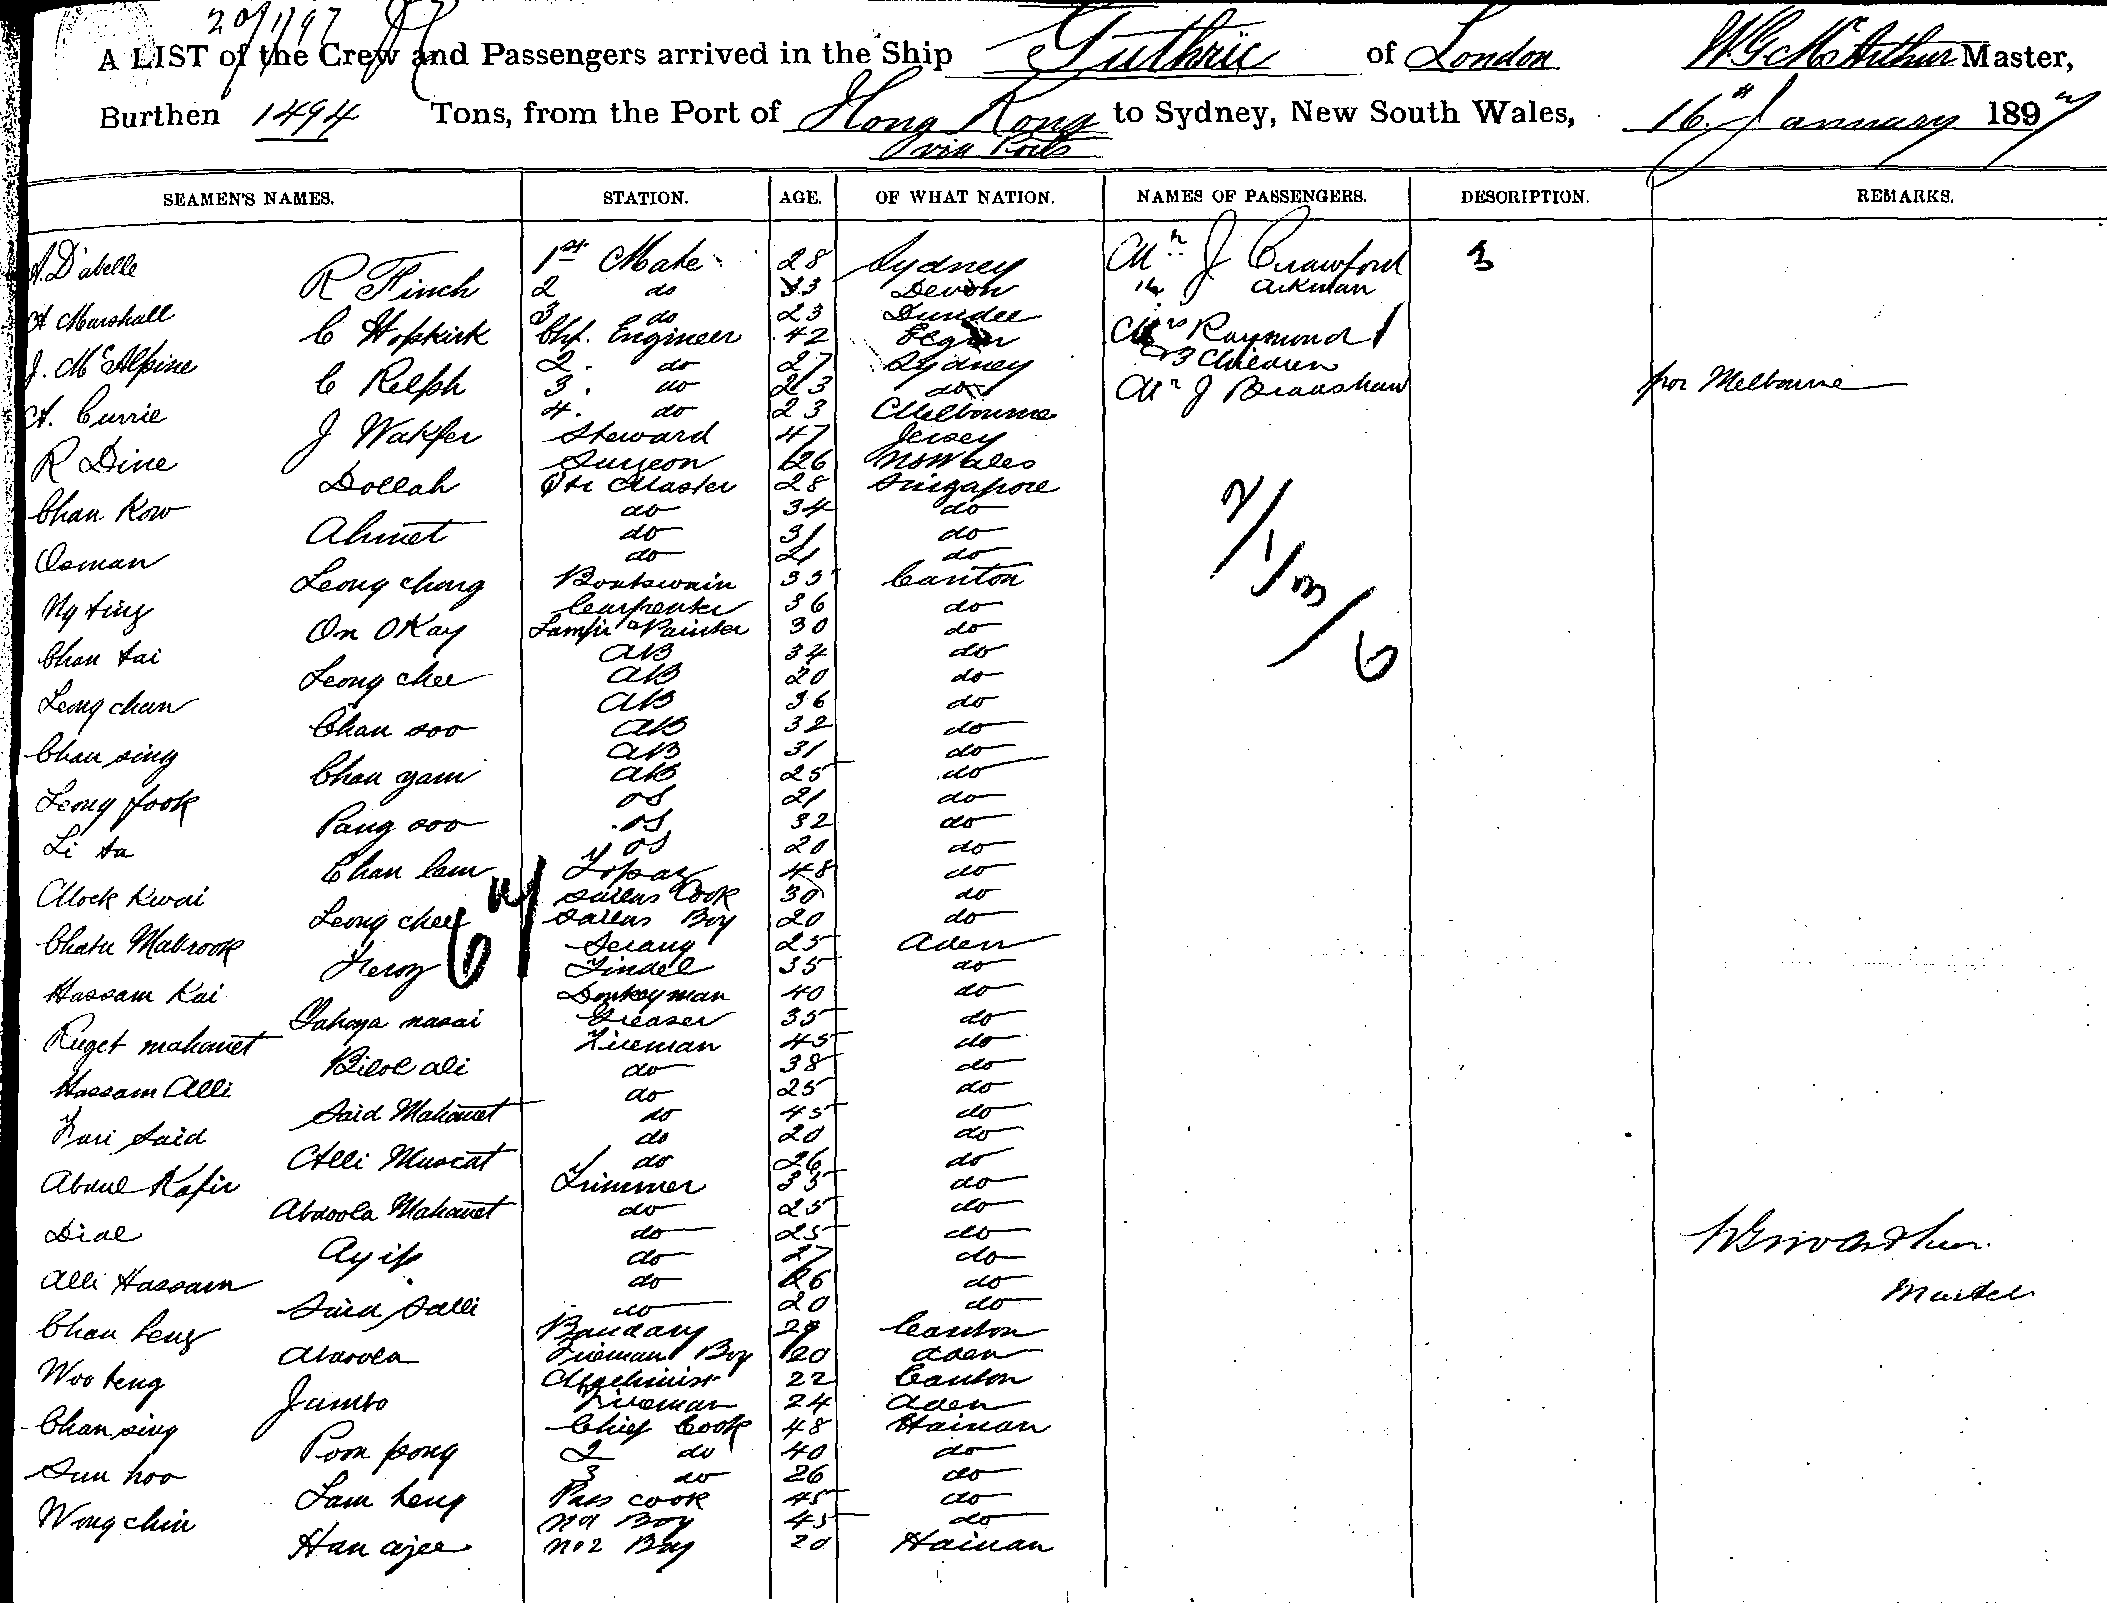 20/1/97
A LIST of the Crew and Passengers arrived in the Ship Guthrie of London W G McArthur Master,
Burthen 1494 Tons, from the Port of Hong Kong to Sydney, New South Wales, 16th January 1897
via Ports
SEAMEN'S NAMES. STATION. AGE. OF WHAT NATION. NAMES OF PASSENGERS. DESCRIPTION. REMARKS.
A. D'abelle 1st Mate 28 Sydney Mr J Crawford 3
R Finch 2 do 33 Devon " J Aikman
A Marshall 3 do 23 Dundee
C Hopkirk Chf. Engineer 42 Elgin Mrs Raymond
J. McAlpine 2. do 27 Sydney & 3 Children
C Relph 3. do 23 do Mr J Bradshaw for Melbourne
A. Currie 4. do 23 Melbourne
J Wakfer Steward 47 Jersey
R Dine Surgeon 26 NSWales
Dollah Qtr Master 28 Singapore
Chan Kow do 34 do
Ahmet do 31 do
Osman do 21 do
Leong chong Boatswain 35 Canton
Ng ting Carpenter 36 do
On OKay Lamps & Painter 30 do
Chan tai AB 34 do
Leong chee AB 20 do
Leong chun AB 36 do
Chan soo AB 32 do
Chan sing AB 31 do
Chan yam AB 25 do
Leong fook OS 21 do
Pang soo OS 32 do
Li ta OS 20 do
Chan lam Topaz 48 do
Mock Kwai Sailors Cook 30 do
Leong chee Sailors Boy 20 do
Chatu Mabrook Serang 25 Aden
Feroz Tindel 35 do
Hassam Kai Donkeyman 40 do
Yahoya nasai Greaser 35 do
Ruget mahomet Fireman 45 do
Bilol ali do 38 do
Hassam Alli do 25 do
Said Mahomet do 45 do
Fari Said do 20 do
Alli Muscat do 26 do
Abdul Kafir Trimmer 35 do
Abdoola Mahomet do 25 do
Dial do 25 do
Ayip do 27 do
Alli Hassam do 26 do
Said Salli do 20 do
Chan heng Bandary 29 Canton
Abdoola Fireman's Boy 20 Aden
Woo teng Machinist 22 Canton
Jumbo Fireman 24 Aden
Chan sing Chief Cook 48 Hainan
Poon pong 2 do 40 do
Sun hoo 3 do 26 do
Lam heng Pass cook 45 do
Wong chin No 1 Boy 45 do
Han ajee No 2 Boy 20 Hainan
2/1/3/6
W G McArthur
Master